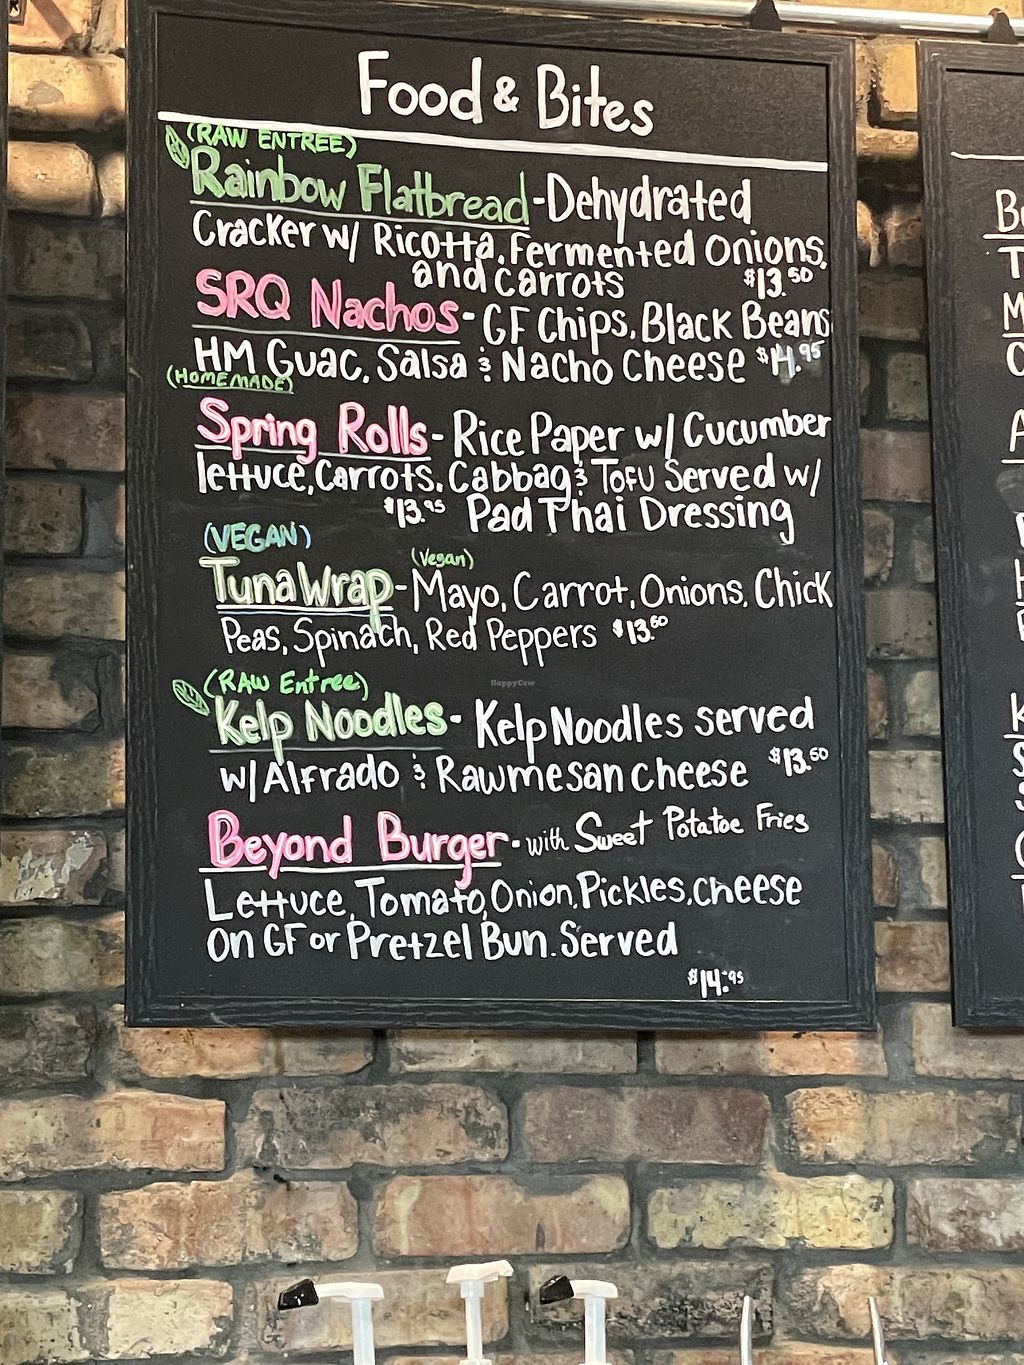 Food & Bites
(RAW ENTREE)
Rainbow Flatbread - Dehydrated
Cracker w/ Ricotta, Fermented Onions,
and carrots $13.50
SRQ Nachos - GF Chips, Black Beans
HM Guac, Salsa & Nacho Cheese $14.95
(HOMEMADE)
Spring Rolls - Rice Paper w/ Cucumber
lettuce, Carrots, Cabbag & Tofu Served w/
$13.95 Pad Thai Dressing
(VEGAN)
(Vegan)
Tuna Wrap - Mayo, Carrot, Onions, Chick
Peas, Spinach, Red Peppers $13.50
HappyCow
(RAW Entree)
Kelp Noodles - Kelp Noodles served
w/ Alfrado & Rawmesan cheese $13.50
Beyond Burger - with Sweet Potatoe Fries
Lettuce, Tomato, Onion, Pickles, cheese
on GF or Pretzel Bun. Served
$14.95